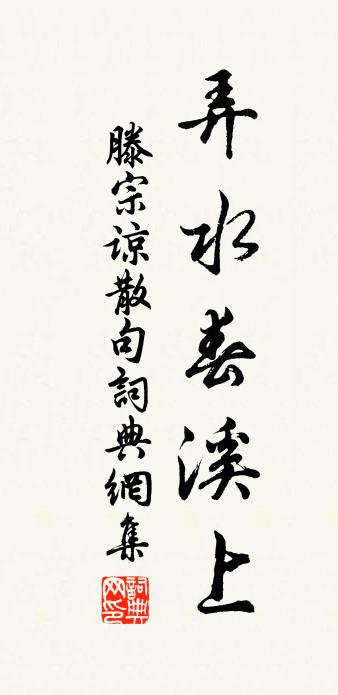 弄水春溪上
滕宗谅散句詞典網集
詞典網印